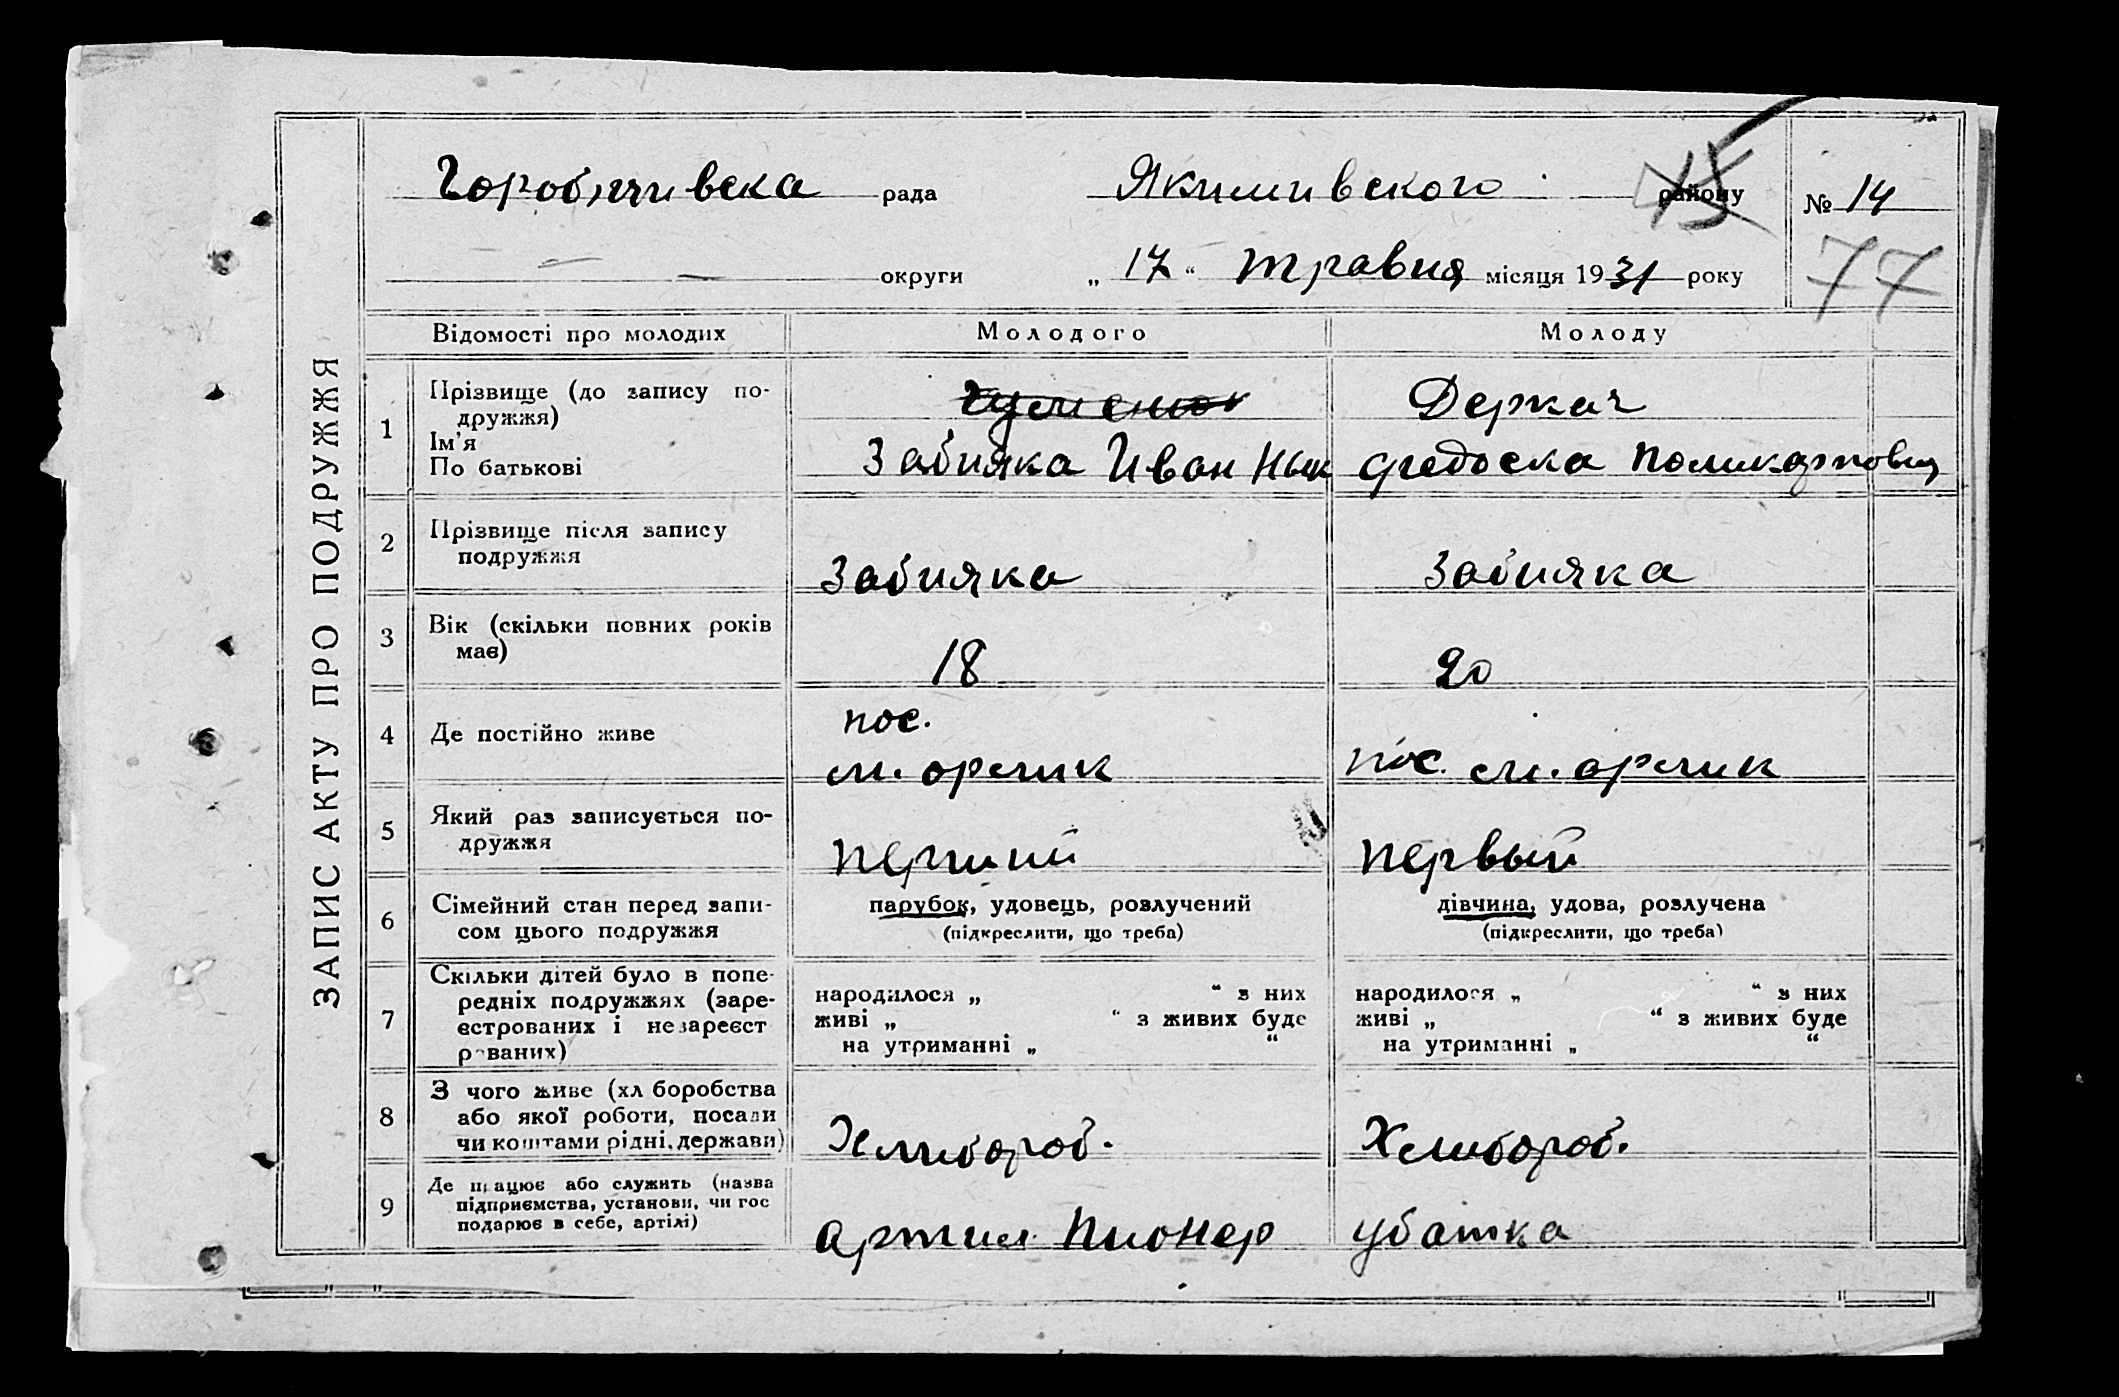 ЗАПИС АКТУ ПРО ПОДРУЖЖЯ
Горобчивска рада Якимивского району № 14
15
округи „ 17 “ травня місяця 1931 року
77
Відомості про молодих Молодого Молоду
1 Прізвище (до запису по-
дружжя)
Ім'я
По батькові
Деркач
Забияка Иван Ник Федоска Поликарповн
2 Прізвище після запису
подружжя
Забияка Забияка
3 Вік (скільки повних років
має)
18 20
4 Де постійно живе
пос.
м. орлик пос. м. орлик
5 Який раз записується по-
дружжя
перший первый
6 Сімейний стан перед запи-
сом цього подружжя
парубок, удовець, розлучений дівчина, удова, розлучена
(підкреслити, що треба) (підкреслити, що треба)
7 Скільки дітей було в попе-
редніх подружжях (заре-
єстрованих і незареєст
рованих)
народилося „ “ з них народилося „ “ з них
живі „ “ з живих буде живі „ “ з живих буде
на утриманні „ “ на утриманні „ “
8 З чого живе (хліборобства
або якої роботи, посади
чи коштами рідні, держави)
Хлибороб. Хлибороб.
9 Де працює або служить (назва
підприємства, установи, чи гос
подарює в себе, артілі)
артил Пионер убатка